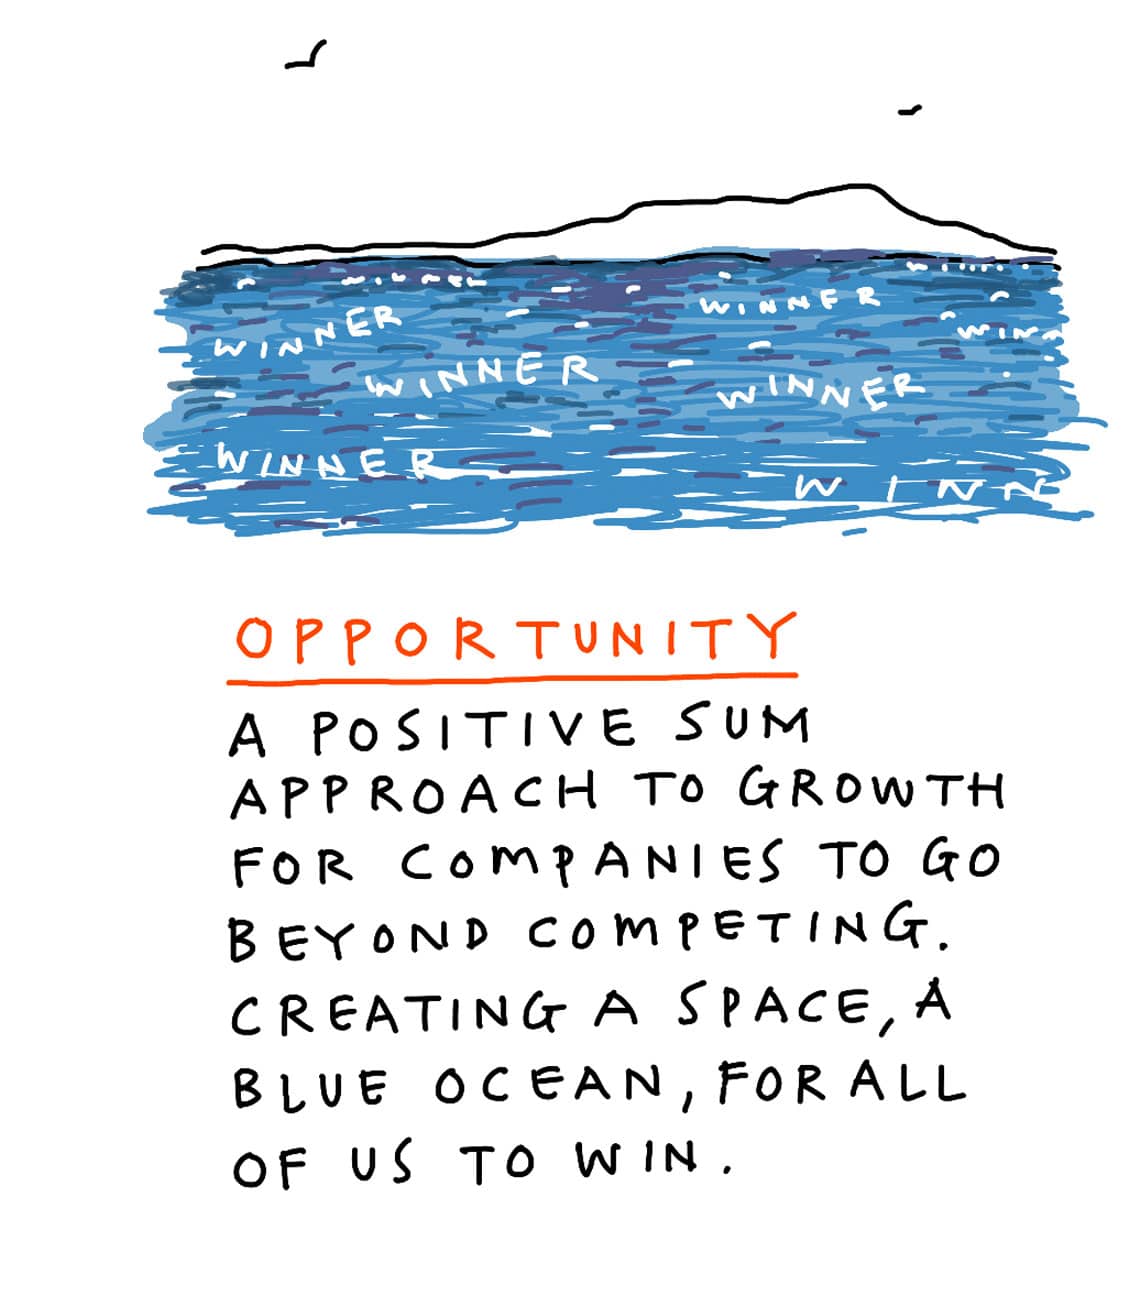 WINNER
WINNER
WINN
WINNER
WINNER
WINNER
WINN
OPPORTUNITY
A POSITIVE SUM
APPROACH TO GROWTH
FOR COMPANIES TO GO
BEYOND COMPETING.
CREATING A SPACE, A
BLUE OCEAN, FOR ALL
OF US TO WIN.